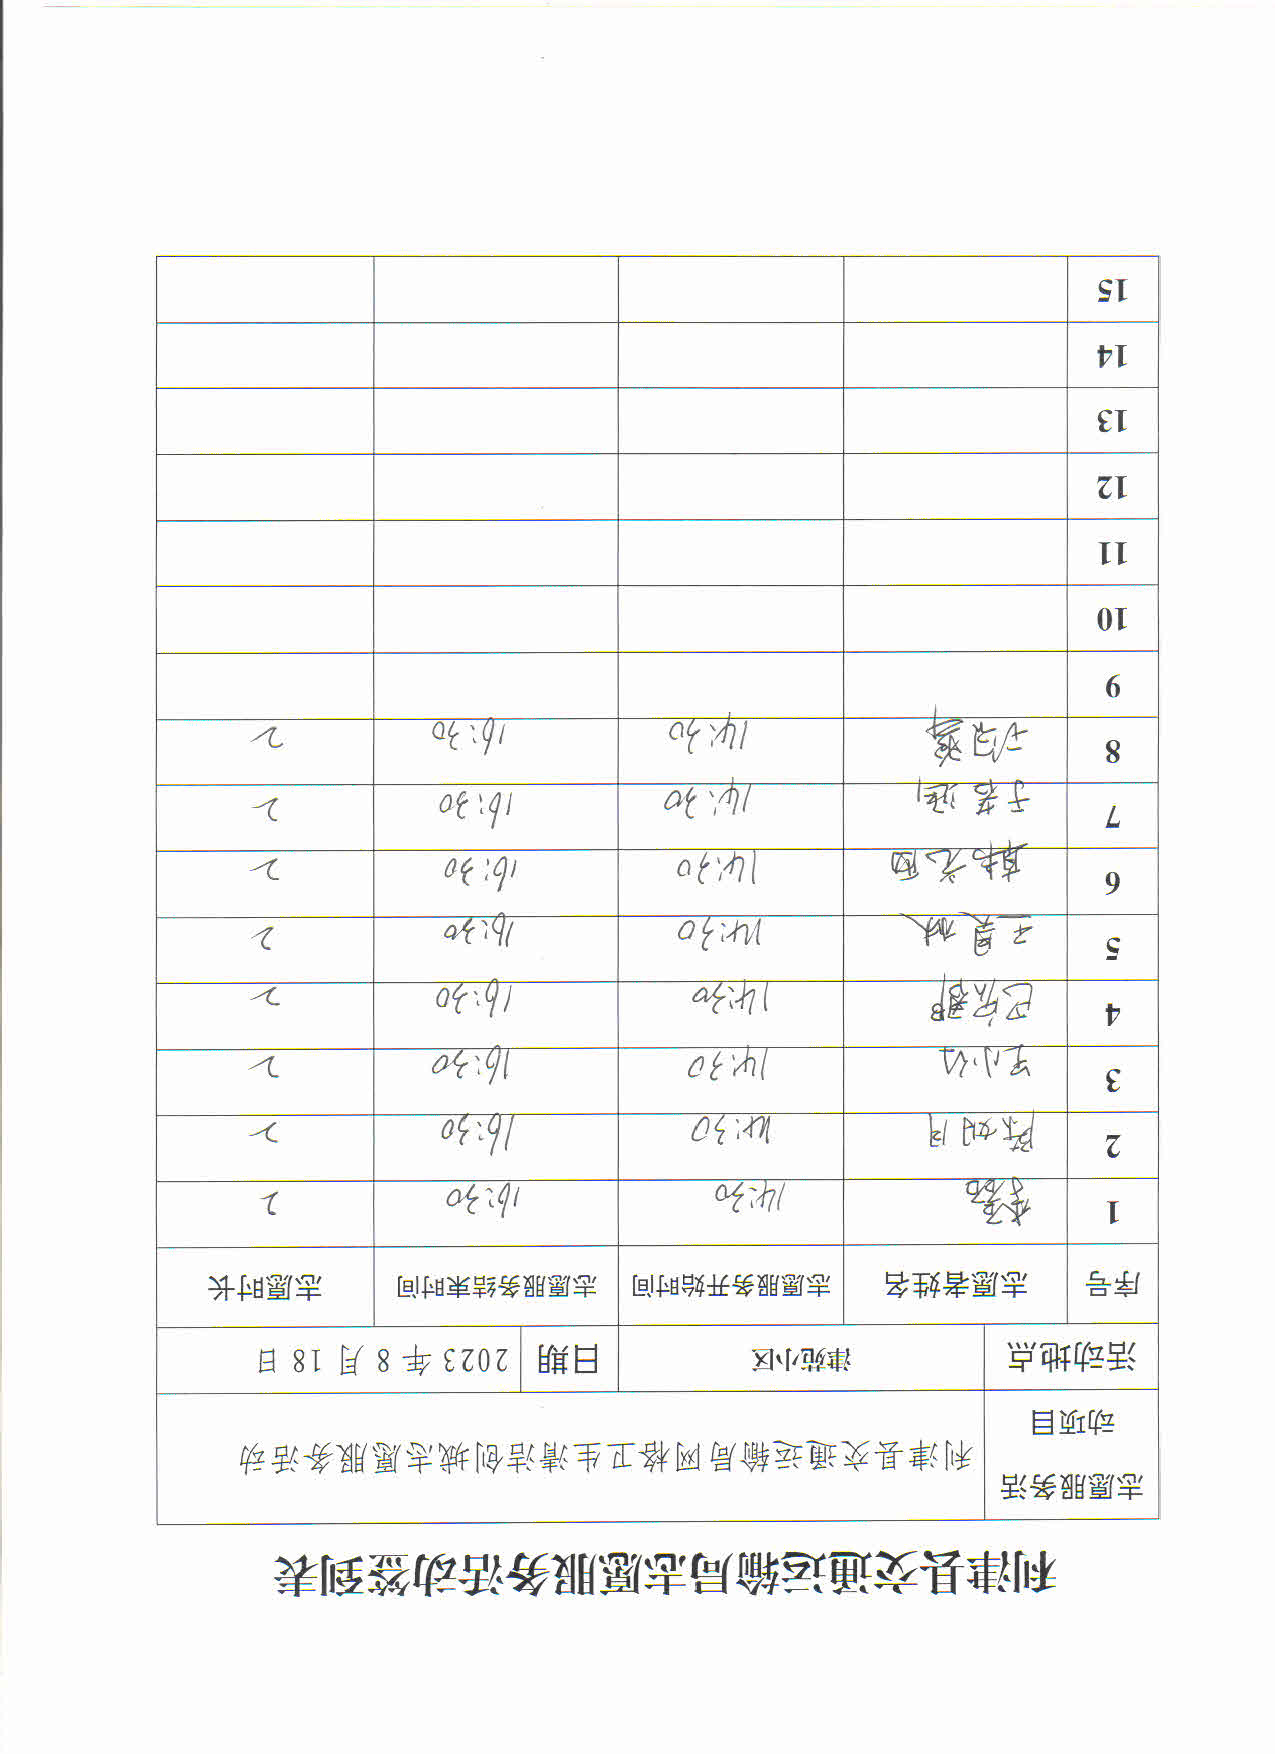 利津县交通运输局志愿服务活动签到表
志愿服务活动项目 利津县交通运输局网格卫生清洁创城志愿服务活动
活动地点 津苑小区 日期 2023年8月18日
序号 志愿者姓名 志愿服务开始时间 志愿服务结束时间 志愿时长
1 14:30 16:30 2
2 陈如月 14:30 16:30 2
3 14:30 16:30 2
4 14:30 16:30 2
5 14:30 16:30 2
6 14:30 16:30 2
7 14:30 16:30 2
8 14:30 16:30 2
9
10
11
12
13
14
15